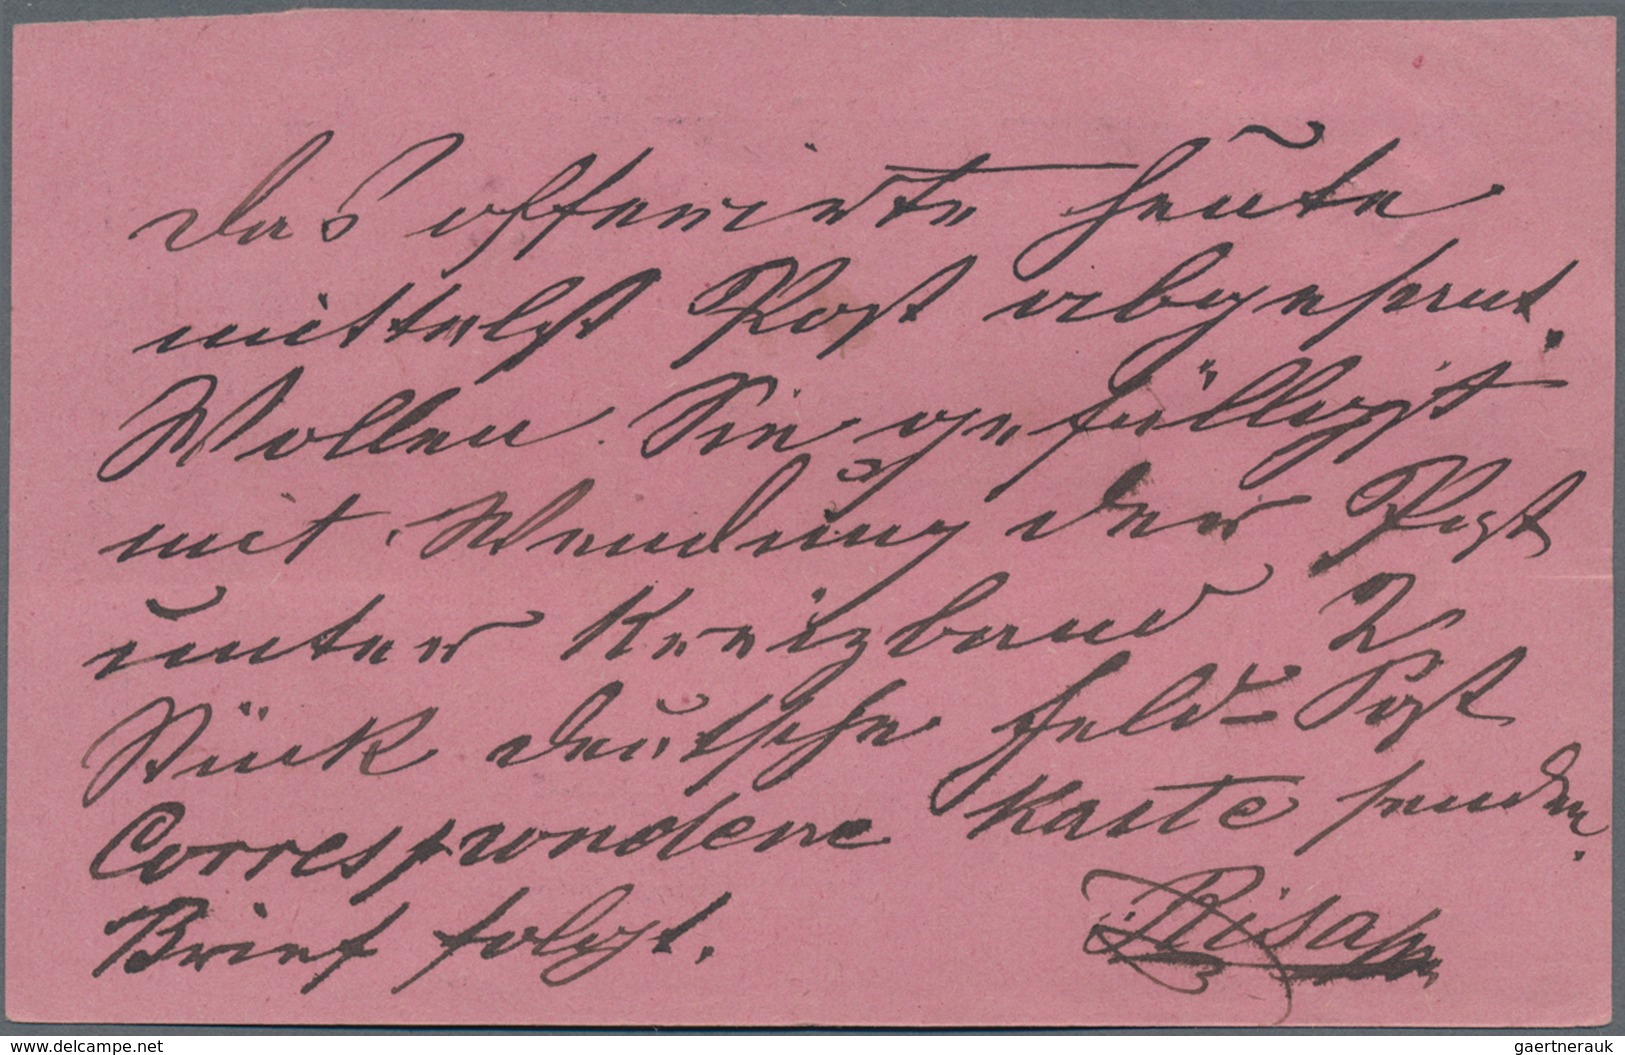 das offerirte heute
mittelst Post abgesant.
Wollen Sie gefälligst
mit Wendung der Post
unter Kreuzband 2
Stück deutsche Feld-Post
Correspondenc Karte senden.
Brief folgt.
delcampe.net
gaertnerauk